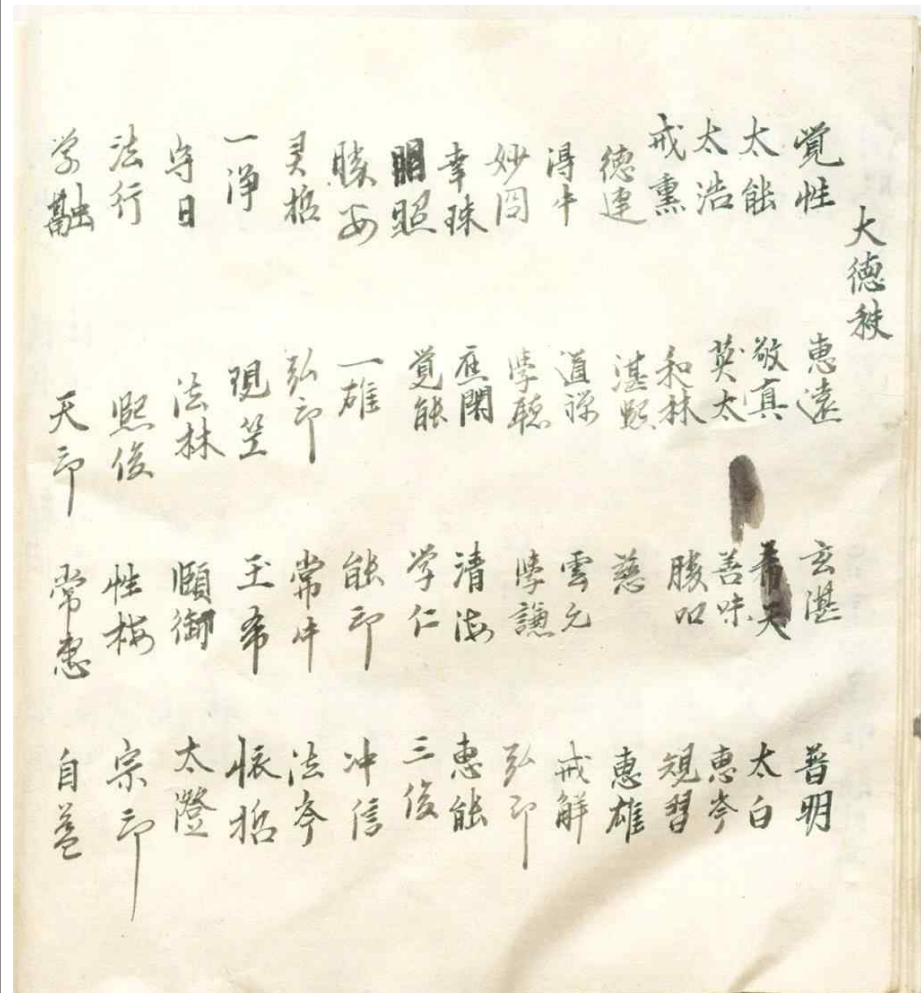 大德秩
覺性 惠遠 玄湛 普明
太能 敬真 希天 太白
太浩 英太 善味 惠岑
戒熏 和林 勝 規習
德連 湛熙 慈 惠雄
得牛 道禪 雲允 戒解
妙囧 學聰 學謙 弘印
幸珠 應閑 清海 惠能
明照 覺能 学仁 三俊
勝安 一雄 能印 冲信
灵哲 弘印 常牛 法岑
一净 現空 玉希 恢哲
守日 法林 頤御 太澄
法行 熙俊 性梅 宗印
学融 天印 常惠 自益